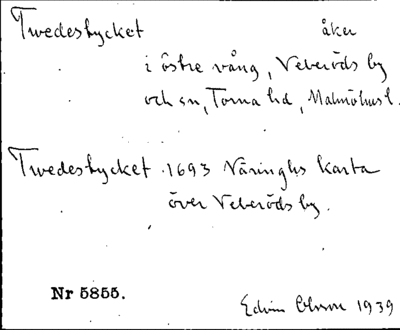 Twedestycket åker
i östre vång, Veberöds by
och sn, Torna hd, Malmöhus l.
Twedestycket 1693 Näringhs karta
över Veberöds by.
Nr 5855.
Edvin Ohlsson 1939